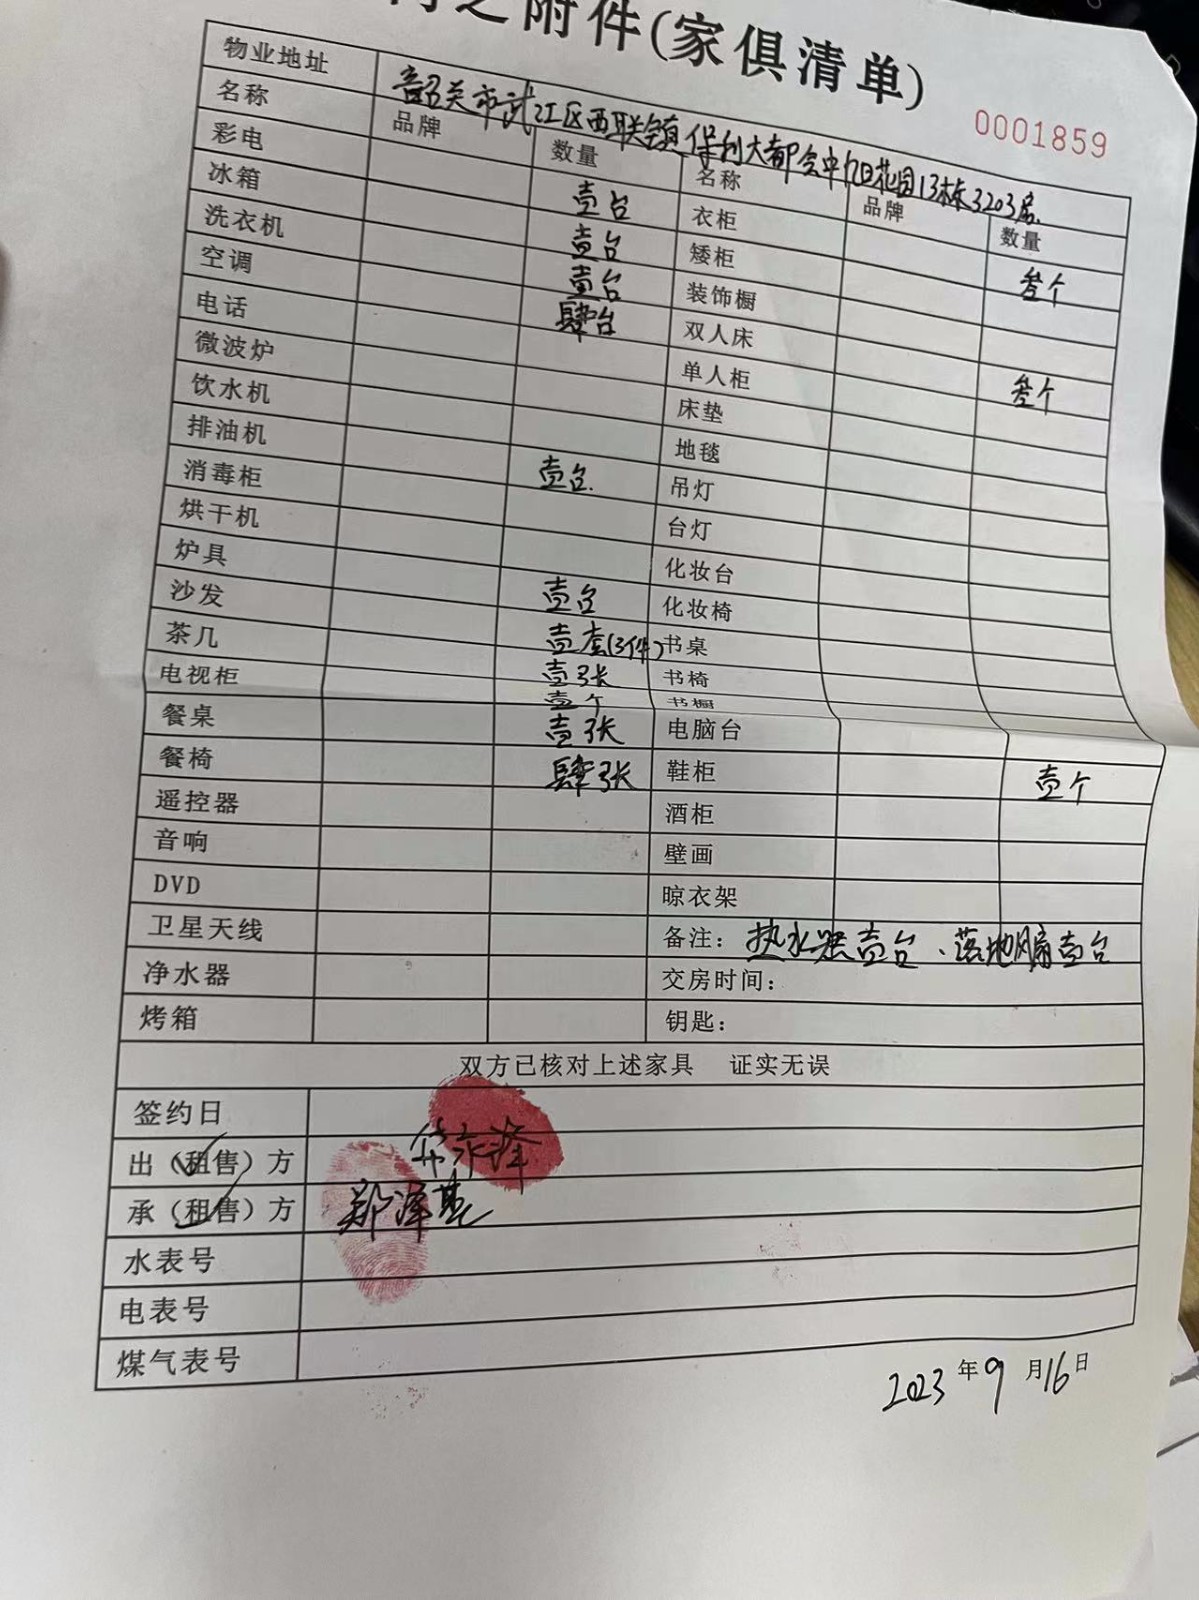 之附件(家俱清单)
0001859
物业地址 韶关市武江区西联镇保利大都会中心花园13栋3203房
名称 品牌 数量 名称 品牌 数量
彩电 壹台 衣柜 叁个
冰箱 壹台 矮柜
洗衣机 壹台 装饰橱
空调 肆台 双人床 叁个
电话 单人柜
微波炉 床垫
饮水机 地毯
排油机 壹台 吊灯
消毒柜 台灯
烘干机 化妆台
炉具 壹台 化妆椅
沙发 壹套(3件) 书桌
茶几 壹张 书椅
电视柜 壹个 书橱
餐桌 壹张 电脑台
餐椅 肆张 鞋柜 壹个
遥控器 酒柜
音响 壁画
DVD 晾衣架
卫星天线 备注: 热水器壹台、落地扇壹台
净水器 交房时间:
烤箱 钥匙:
双方已核对上述家具 证实无误
签约日
出(租售)方
承(租售)方 郑泽基
水表号
电表号
煤气表号
2023年9月16日